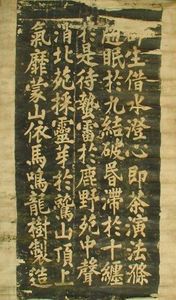 生借水澄心即茶演法滌
眠於九結破昏滯於十纏
於是待蟄雷於鹿野苑中聲
消北苑採靈芽於鷲山頂上
氣靡蒙山依馬鳴龍樹製造